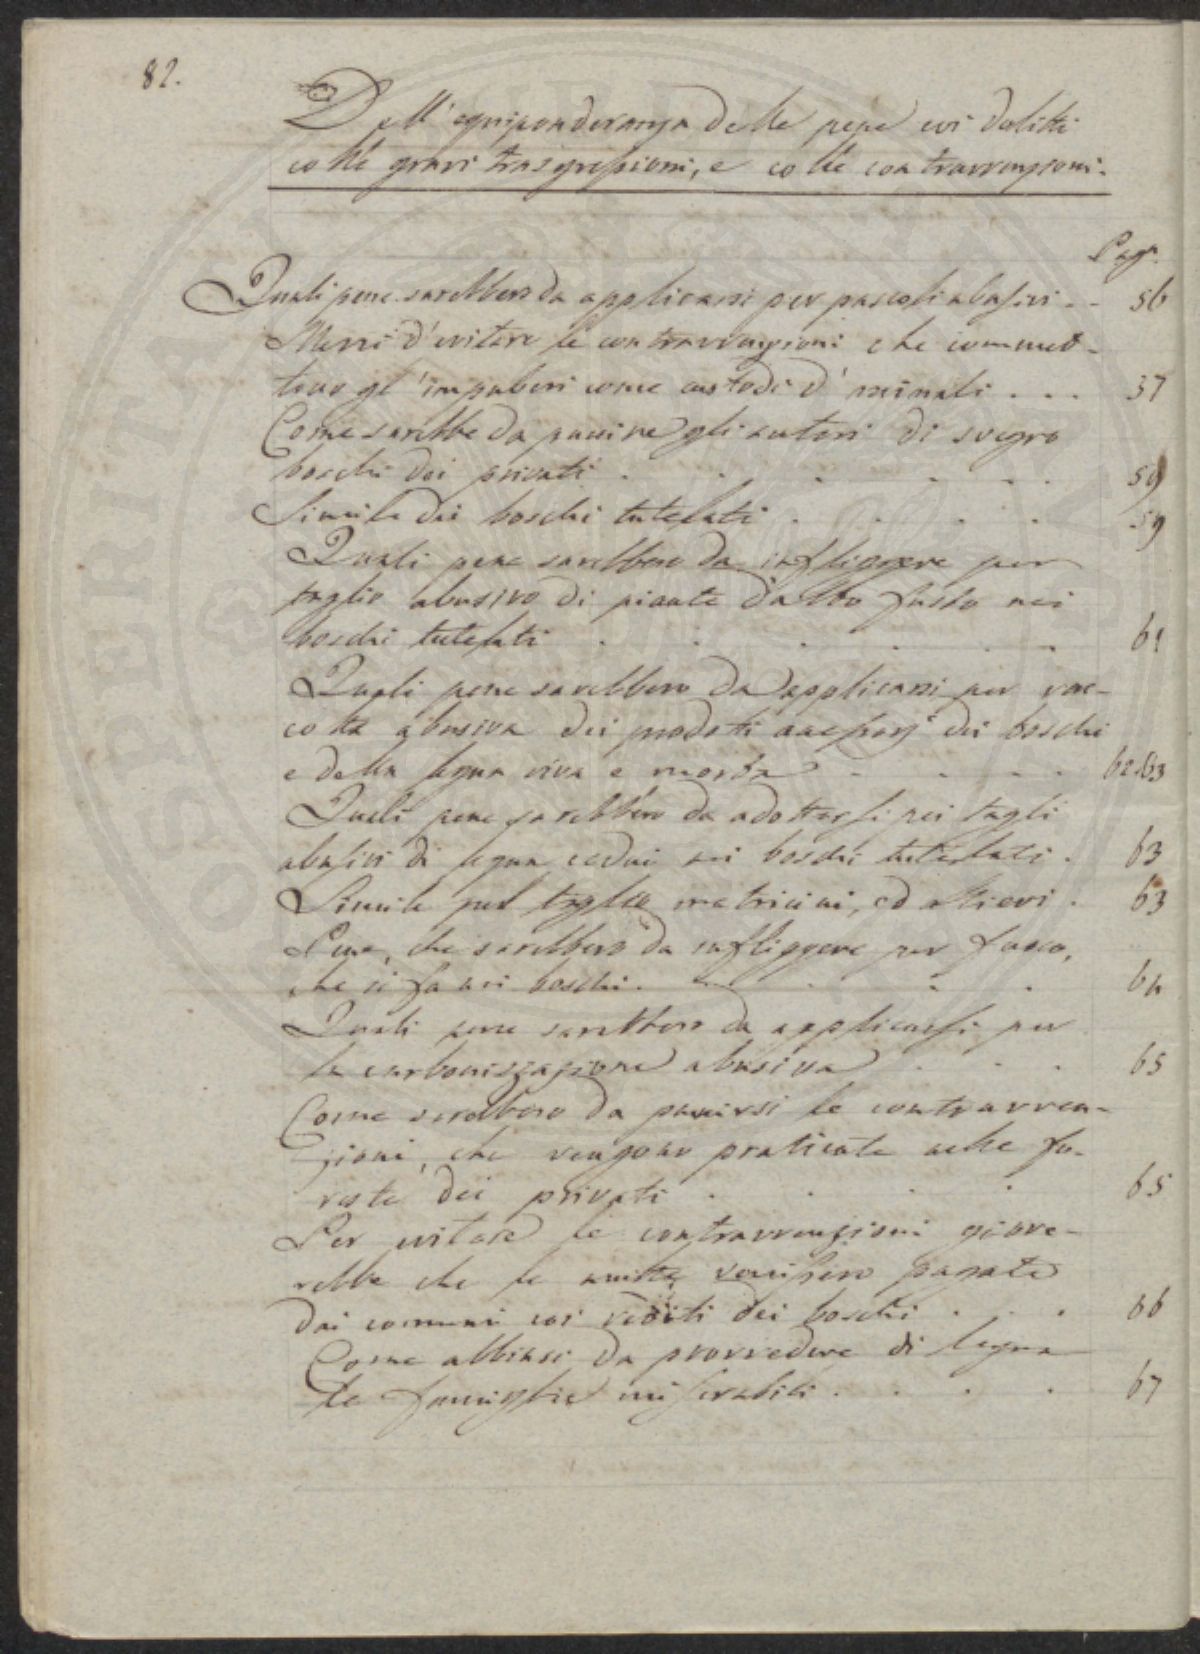 82.
Dell'equiponderanza delle pene coi delitti
colle gravi trasgressioni, e colle contravvenzioni.
Pag.
Quali pene sarebbero da applicarsi per pascoli abusivi - - 56
Mezzi d'evitare le contravvenzioni che commet-
tono gl'impuberi come custodi d'animali . . . 57
Come sarebbe da punire gli autori di svegro
boschi dei privati . . . . . . 59
Simile dei boschi tutelati . . . . 59
Quali pene sarebbero da infliggere per
taglio abusivo di piante d'alto fusto nei
boschi tutelati . . . . . . 61
Quali pene sarebbero da applicarsi per rac-
colta abusiva dei prodotti accessorj dei boschi
e della legna viva e morta . . . . 62.63
Quali pene sarebbero da adottarsi pei tagli
abusivi di legna cedui nei boschi tutelati . 63
Simile pel taglio matricini, ed allievi . 63
Pene, che sarebbero da infliggere per fuoco,
che si fa nei boschi . . . . 64
Quali pene sarebbero da applicarsi per
la carbonizzazione abusiva . . . 65
Come sarebbero da punirsi le contravven-
zioni, che vengono praticate nelle fo-
reste dei privati . . . . 65
Per evitare le contravvenzioni giove-
rebbe che le multe venissero pagate
dai comuni coi redditi dei boschi . . . 66
Come abbiasi da provvedere di legna
le famiglie miserabili . . . . 67